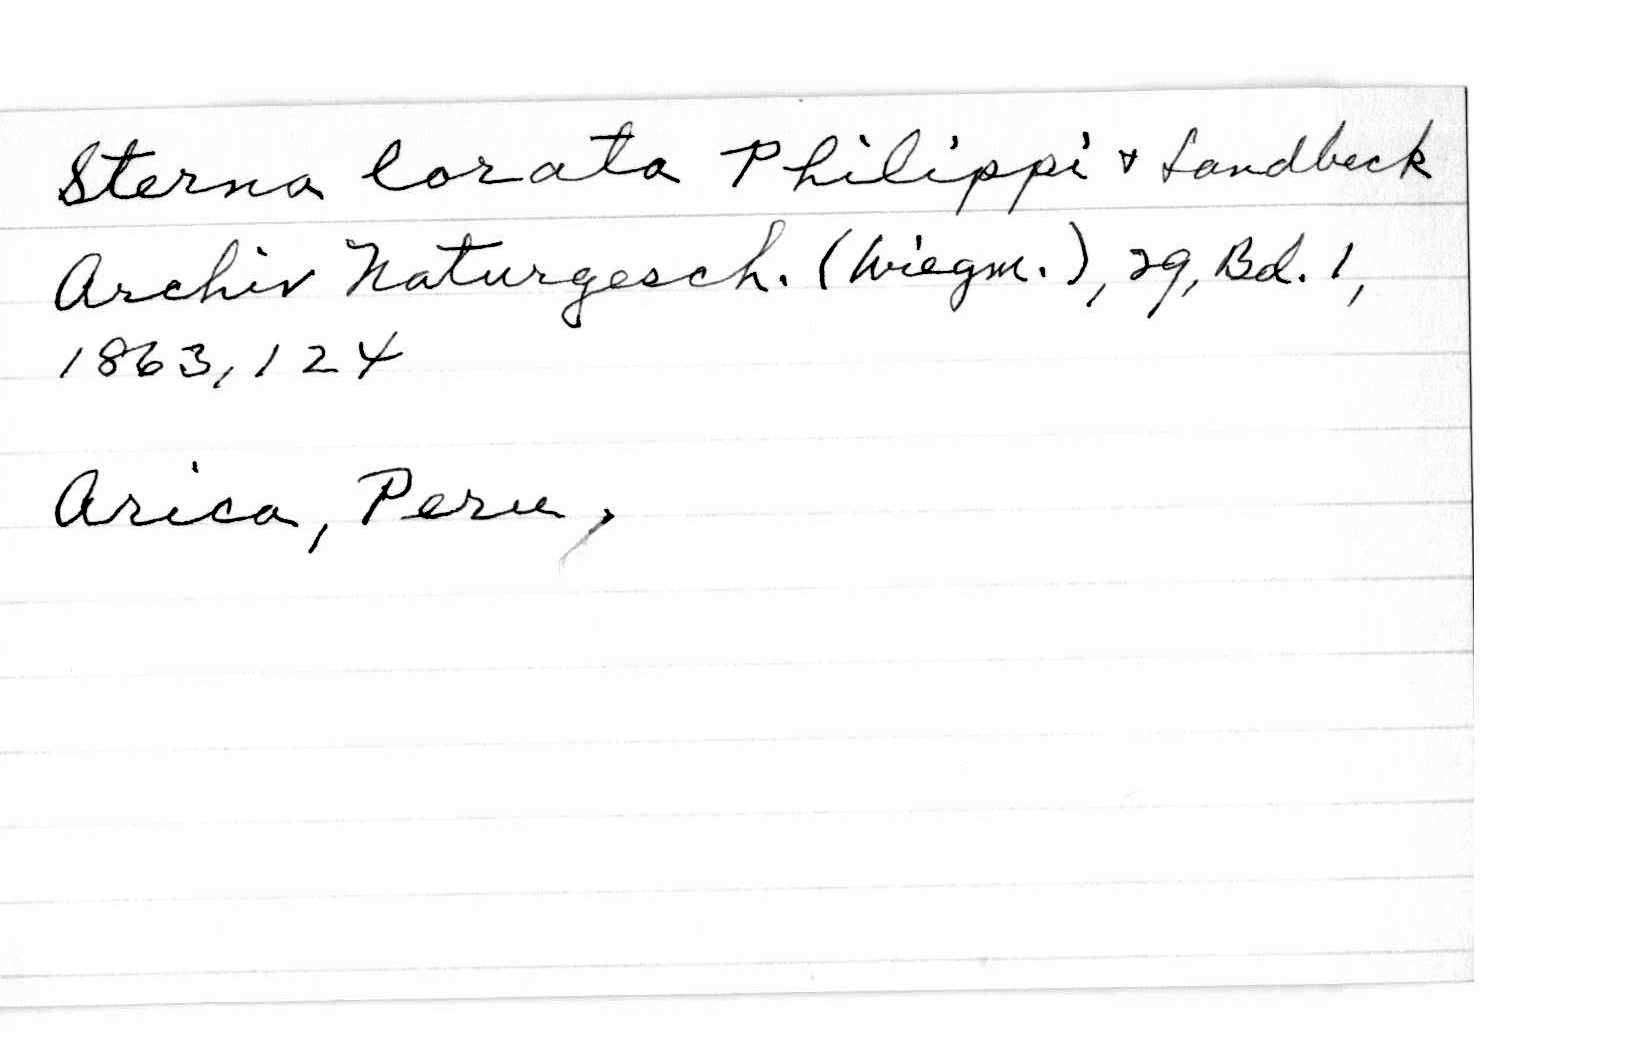 Sterna lorata Philippi & Landbeck
Archiv Naturgesch. (Wiegm.), 29, Bd. 1,
1863, 124
Arica, Peru,